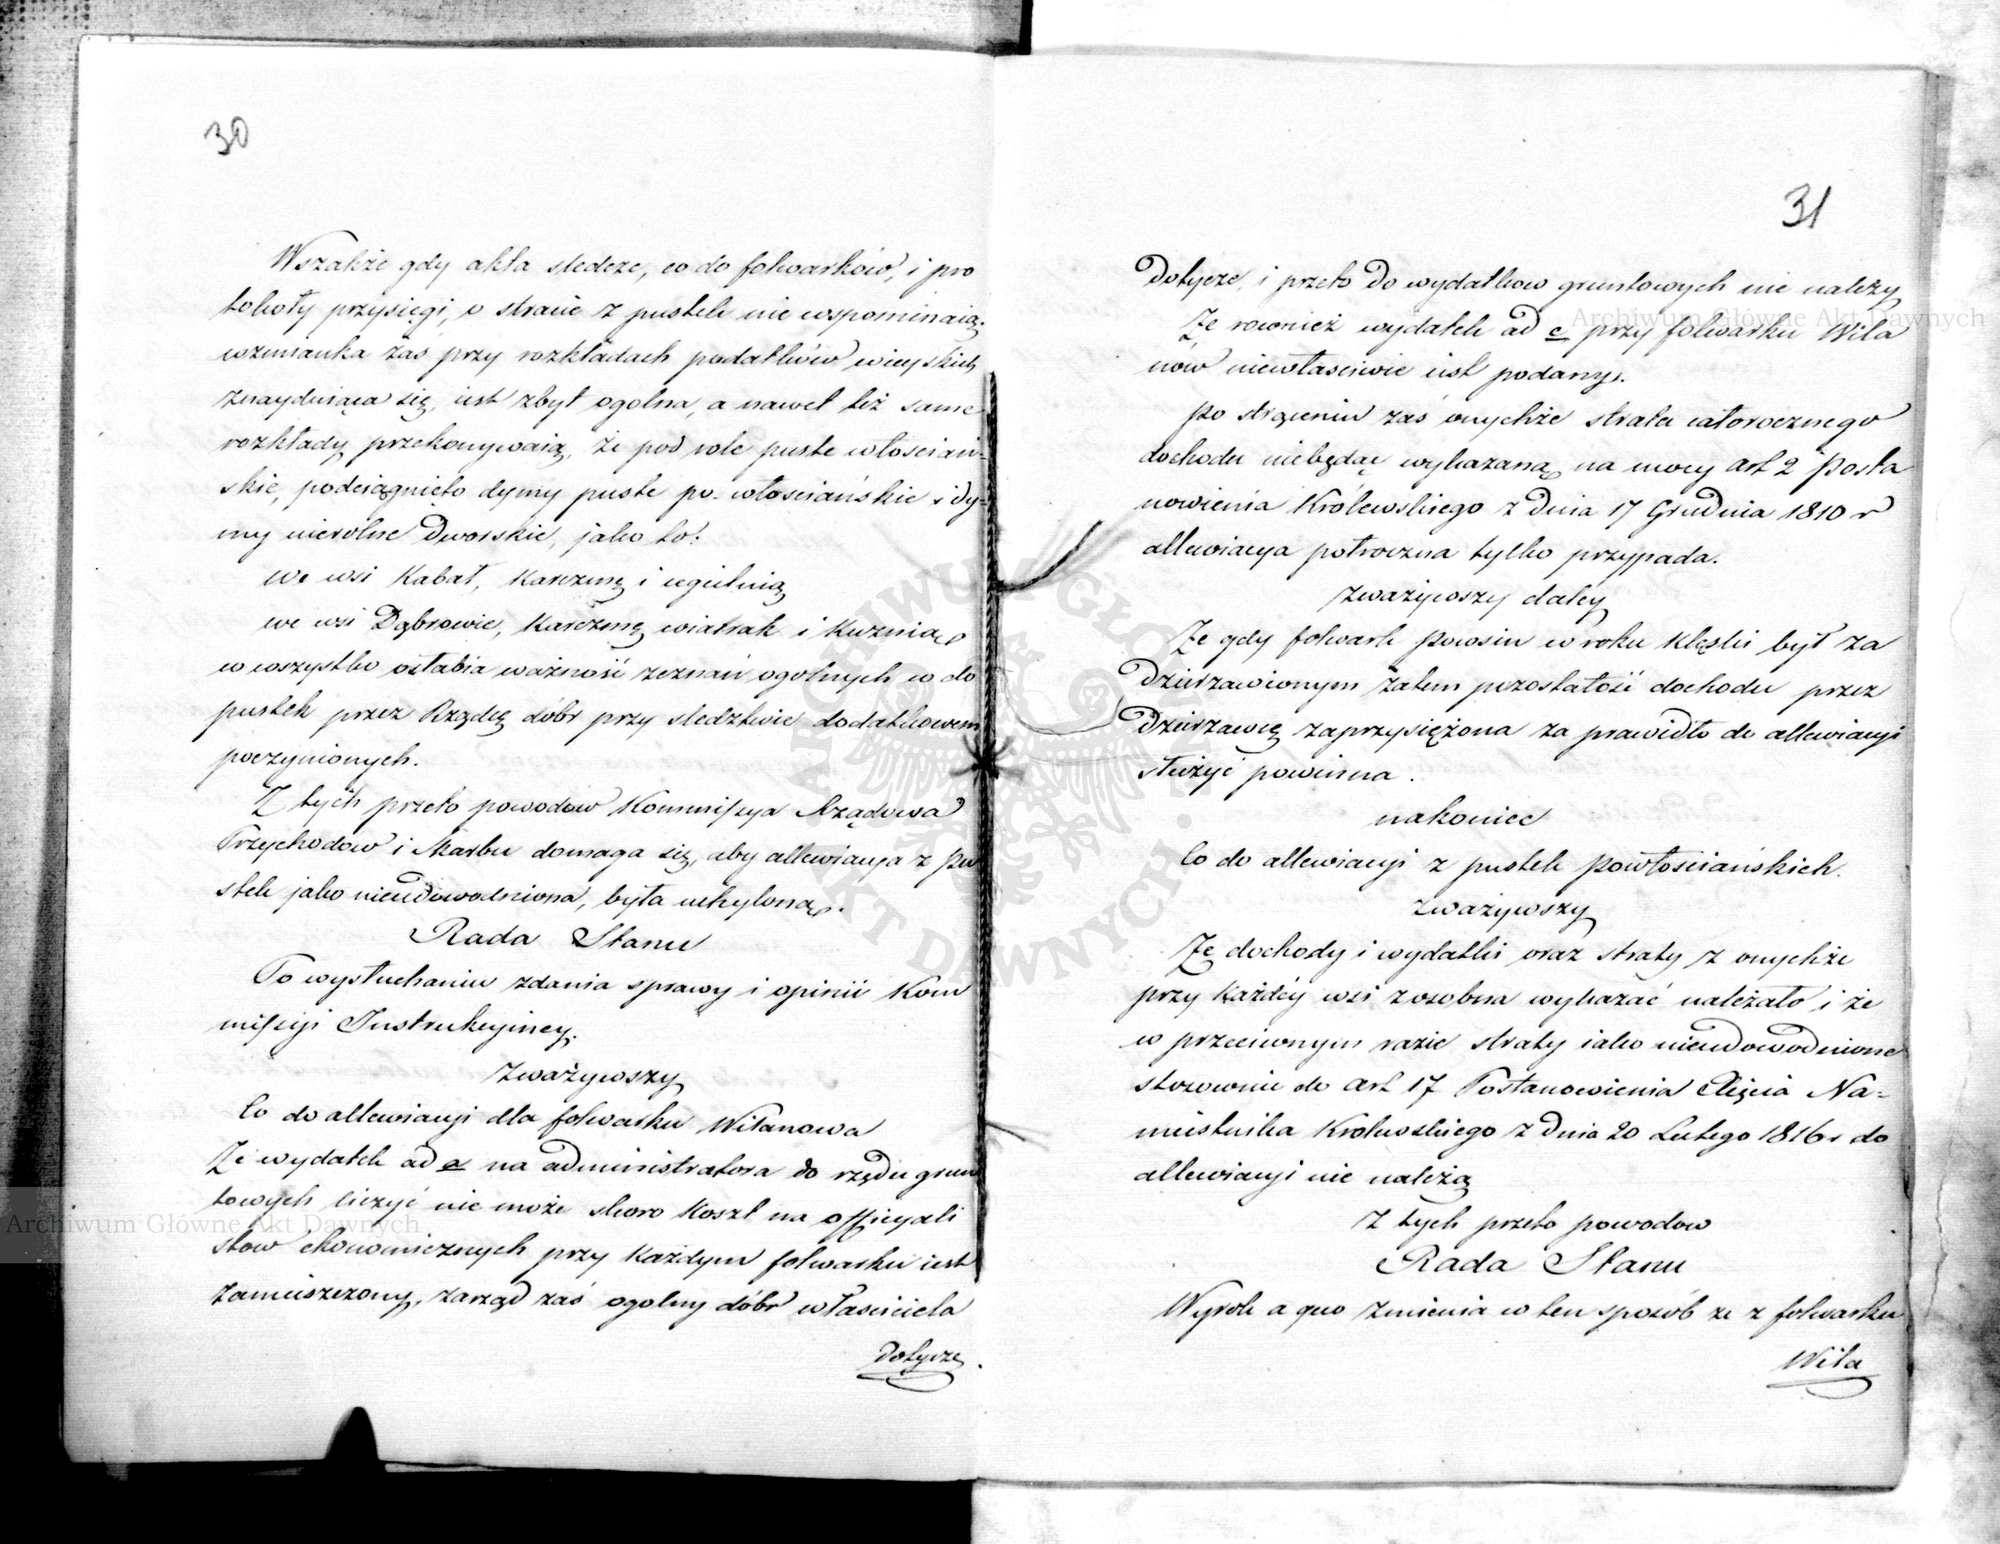 30
Wszakże gdy akta śledcze, co do folwarków, i pro
tokoły przysięgi, o stracie z pustek nie wspominaią.
wzmianka zaś przy rozkładach podatków wieyskich
znayduiąca się, iest zbyt ogolna, a nawet też same
rozkłady przekonywaią, że pod role puste włościań-
skie, podciągnięto dymy puste po-włościańskie i dy-
my nierolne Dworskie, jako to:
we wsi Kabat, Karczmę i cegielnią
we wsi Dąbrowie, Karczmę wiatrak i Kuznią, c
w wszystko osłabia ważność zeznań ogolnych co do
pustek przez Rządcę dóbr przy śledztwie dodatkowem
poczynionych.
Z tych przeto powodow Kommissya Rządowa
Przychodow i Skarbu domaga się, aby allewiacya z pu
stek jako nieudowodniona, była uchyloną.
Rada Stanu
Po wysłuchaniu zdania sprawy i opinii Kom
missyi Instrukcyiney.
Zważywszy
Co do allewiacyi dla folwarku Wilanowa
Że wydatek ad a na administratora do rzędu grun
towych liczyć nie może skoro koszt na officyali
stow ekonomicznych przy każdym folwarku iest
zamieszczony, zarząd zaś ogolny dóbr właściciela
Dotycze.
31
Dotycze, i przeto do wydatkow gruntowych nie należy
Że rownież wydatek ad c przy folwarku Wila
nów niewłaściwie iest podany.
Po strąceniu zaś onychże strata całorocznego
dochodu niebędąc wykazaną na mocy art 2 Posta
nowienia Królewskiego z Dnia 17 Grudnia 1810 r
allewiacya potroczna tylko przypada.
Zważywszy daley
Że gdy folwark Powsin w roku klęski był za
Dzierzawionym zatem pozostałość dochodu przez
Dzierzawcę zaprzysiężona za prawidło do allewiacyi
służyć powinna.
nakoniec
Co do allewiacyi z pustek Powłościańskich.
Zważywszy
Że dochody i wydatki oraz straty z onychże
przy każdéy wsi z osobna wykazać należało i że
w przeciwnym razie straty iako nieudowodnione
stosownie do art 17 Postanowienia Xięcia Na-
miestnika Krolewskiego z Dnia 20 Lutego 1816 r do
allewiacyi nie należą
Z tych przeto powodow
Rada Stanu
Wyrok a quo zmienia w ten sposób że z folwarku
Wila
Archiwum Główne Akt Dawnych
Archiwum Główne Akt Dawnych
ARCHIWUM GŁÓWNE AKT DAWNYCH